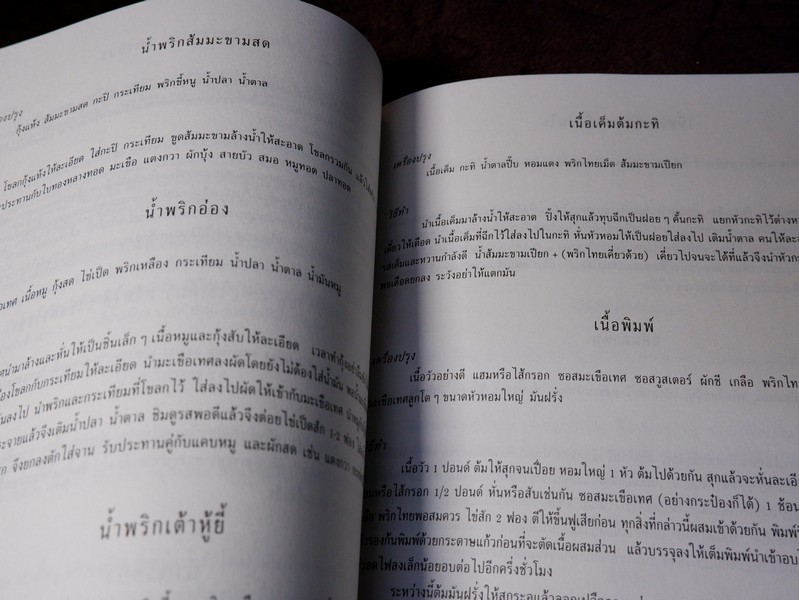 น้ำพริกส้มมะขามสด
กุ้งแห้ง ส้มมะขามสด กะปิ กระเทียม พริกขี้หนู น้ำปลา น้ำตาล
โขลกกุ้งแห้งให้ละเอียด ใส่กะปิ กระเทียม ขูดส้มมะขามล้างน้ำให้สะอาด โขลกรวมกัน
ประทานกับใบทองหลางทอด มะเขือ แตงกวา ผักบุ้ง สายบัว สมอ หมูทอด ปลาทอด
น้ำพริกอ่อง
เนื้อหมู กุ้งสด ไข่เป็ด พริกเหลือง กระเทียม น้ำปลา น้ำตาล น้ำมันหมู
นำมาล้างและหั่นให้เป็นชิ้นเล็ก ๆ เนื้อหมูและกุ้งสับให้ละเอียด
โขลกกับกระเทียมให้ละเอียด นำมะเขือเทศลงผัดโดยยังไม่ต้องใส่น้ำมัน
ลงไป นำพริกและกระเทียมที่โขลกไว้ ใส่ลงไปผัดให้เข้ากับมะเขือเทศ
แล้วจึงเติมน้ำปลา น้ำตาล ชิมดูรสพอดีแล้วจึงต่อยไข่เป็ดสัก 1-2 ฟอง
จึงยกลงตักใส่จาน รับประทานคู่กับแคบหมู และผักสด เช่น แตงกวา
น้ำพริกเต้าหู้ยี้
เนื้อเค็มต้มกะทิ
เครื่องปรุง
เนื้อเค็ม กะทิ น้ำตาลปี๊บ หอมแดง พริกไทยเม็ด ส้มมะขามเปียก
วิธีทำ
นำเนื้อเค็มมาล้างน้ำให้สะอาด ปิ้งให้สุกแล้วทุบฉีกเป็นฝอย ๆ คั้นกะทิ แยกหัวกะทิไว้ต่างหาก
เคี่ยวให้เดือด นำเนื้อเค็มที่ฉีกไว้ใส่ลงไปในกะทิ หั่นหัวหอมให้เป็นฝอยใส่ลงไป เติมน้ำตาล คนให้
รสเค็มและหวานกำลังดี น้ำส้มมะขามเปียก + (พริกไทยเคี่ยวด้วย) เคี่ยวไปจนจะได้ที่แล้วจึงนำหัว
พอเดือดยกลง ระวังอย่าให้แตกมัน
เนื้อพิมพ์
เครื่องปรุง
เนื้อวัวอย่างดี แฮมหรือไส้กรอก ซอสมะเขือเทศ ซอสวูสเตอร์ ผักชี เกลือ พริกไท
มะเขือเทศลูกโต ๆ ขนาดหัวหอมใหญ่ มันฝรั่ง
วิธีทำ
เนื้อวัว 1 ปอนด์ ต้มให้สุกจนเปื่อย หอมใหญ่ 1 หัว ต้มไปด้วยกัน สุกแล้วจะหั่น
หรือไส้กรอก 1/2 ปอนด์ หั่นหรือสับเช่นกัน ซอสมะเขือเทศ (อย่างกระป๋องก็ได้) 1 ช้อน
พริกไทยพอสมควร ไข่สัก 2 ฟอง ตีให้ขึ้นฟูเสียก่อน ทุกสิ่งที่กล่าวนี้ผสมเข้าด้วยกัน
รองก้นพิมพ์ด้วยกระดาษแก้วก่อนที่จะตัดเนื้อผสมส่วน แล้วบรรจุลงให้เต็มพิมพ์นำเข้าอบ
ไฟลงเล็กน้อยอบต่อไปอีกครึ่งชั่วโมง
ระหว่างนี้ต้มมันฝรั่งให้สุก